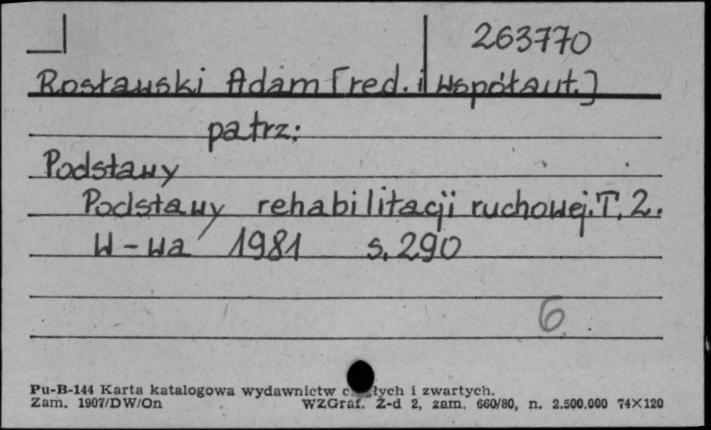 263770
Rosławski Adam [red. i współaut.]
patrz:
Podstawy
Podstawy rehabilitacji ruchowej. T. 2.
W-wa 1981 s. 290
6
Pu-B-144 Karta katalogowa wydawnictw i zwartych.
Zam. 1907/DW/On WZGraf. Z-d 2, zam. 660/80, n. 2.500.000 74×120